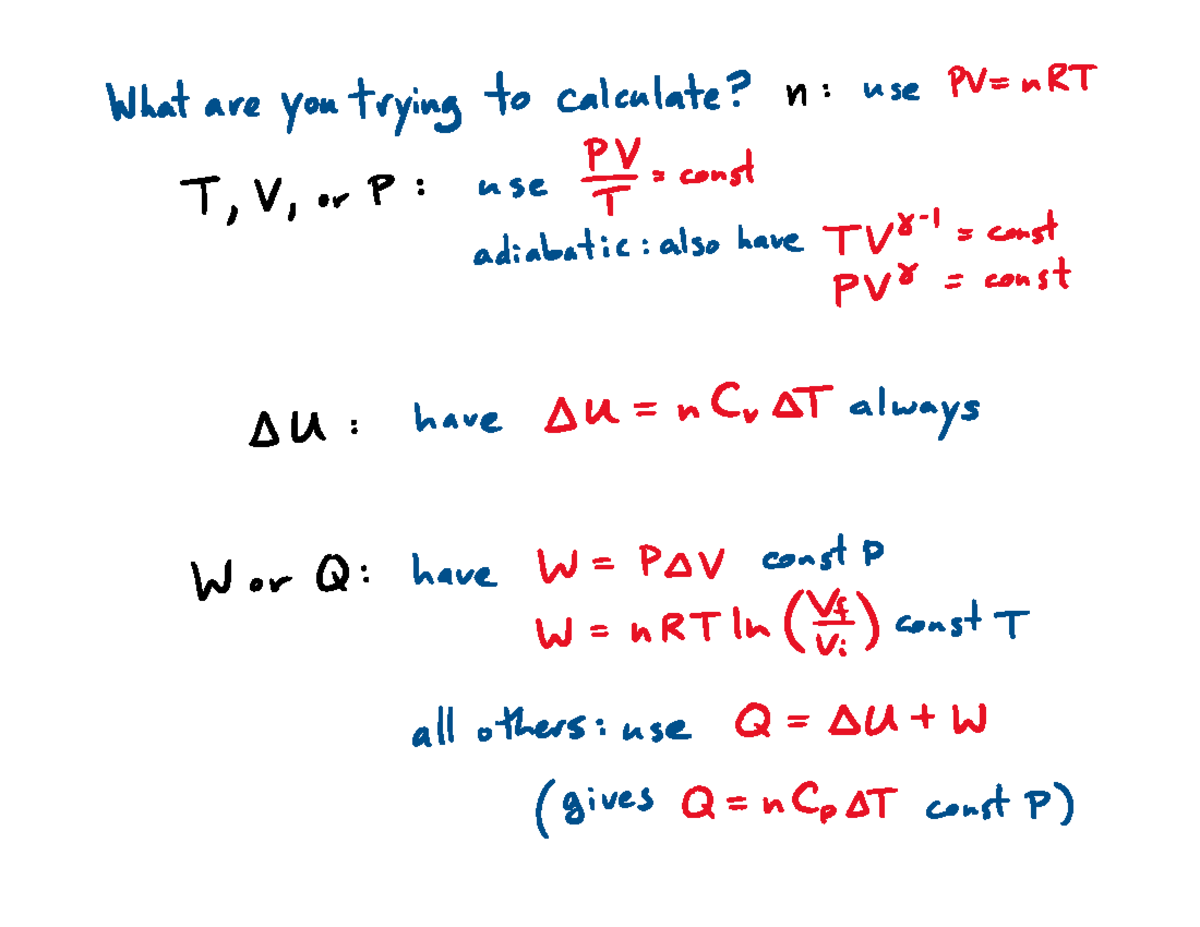 What are you trying to calculate? n: use PV = nRT
T, V, or P: use PV/T = const
adiabatic: also have TV^γ-1 = const
PV^γ = const
ΔU: have ΔU = nCv ΔT always
W or Q: have W = PΔV const P
W = nRT ln (Vf/Vi) const T
all others: use Q = ΔU + W
(gives Q = nCp ΔT const P)